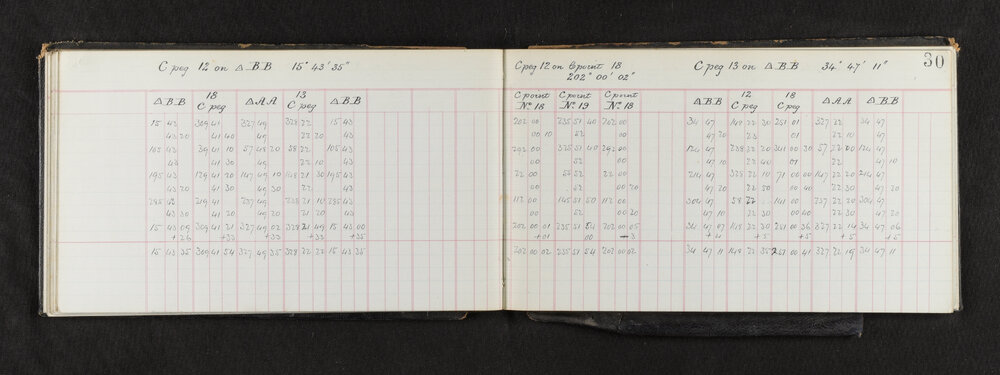 C peg 12 on △ B.B 15° 43' 35"
△ B.B 18 C peg △ A A 13 C peg △ B.B
15 43 309 41 327 49 328 22 15 43
43 20 41 40 49 22 20 43
105 43 39 41 10 57 48 20 58 22 105 43
43 41 30 49 22 10 43
195 43 129 41 20 147 49 10 148 21 30 195 43
43 20 41 30 49 30 22 43
219 41 237 49 238 21 10
43 20 41 20 49 20 22 20 43
15 43 09 309 41 21 327 49 02 328 21 49 15 43 00
+26 +33 +33 +33 +35
15 43 35 309 41 54 327 49 35 328 22 22 15 43 35
C peg 12 on C point 18
202° 00' 02"
C point No 18 C point No 19 C point No 18
202 00 235 51 40 202 00
00 10 52 00
292 00 325 51 40 292 00
00 52 00
22 00 55 52 22 00
00 52 00 20
112 00 145 51 50 112 00
00 52 00 20
202 00 01 235 51 54 202 00 05
+01 00 -3
202 00 02 235 51 54 202 00 02
30
C peg 13 on △ B.B 34° 47' 11"
△ B.B 12 C peg 18 C peg △ A A △ B.B
34 47 148 22 30 251 01 327 22 34 47
47 20 23 01 22 10 47
124 47 238 22 20 341 00 30 57 22 00 124 47
47 10 22 40 01 22 47 10
214 47 328 22 10 71 00 00 147 22 20 214 47
47 20 22 50 00 40 22 30 47 20
304 47 58 22 161 00 237 22 20 304 47
47 10 22 30 00 40 22 30 47
34 47 07 148 22 30 251 00 36 327 22 14 34 47 06
+4 +5 +5 +5 +5
34 47 11 148 22 35 251 00 41 327 22 19 34 47 11